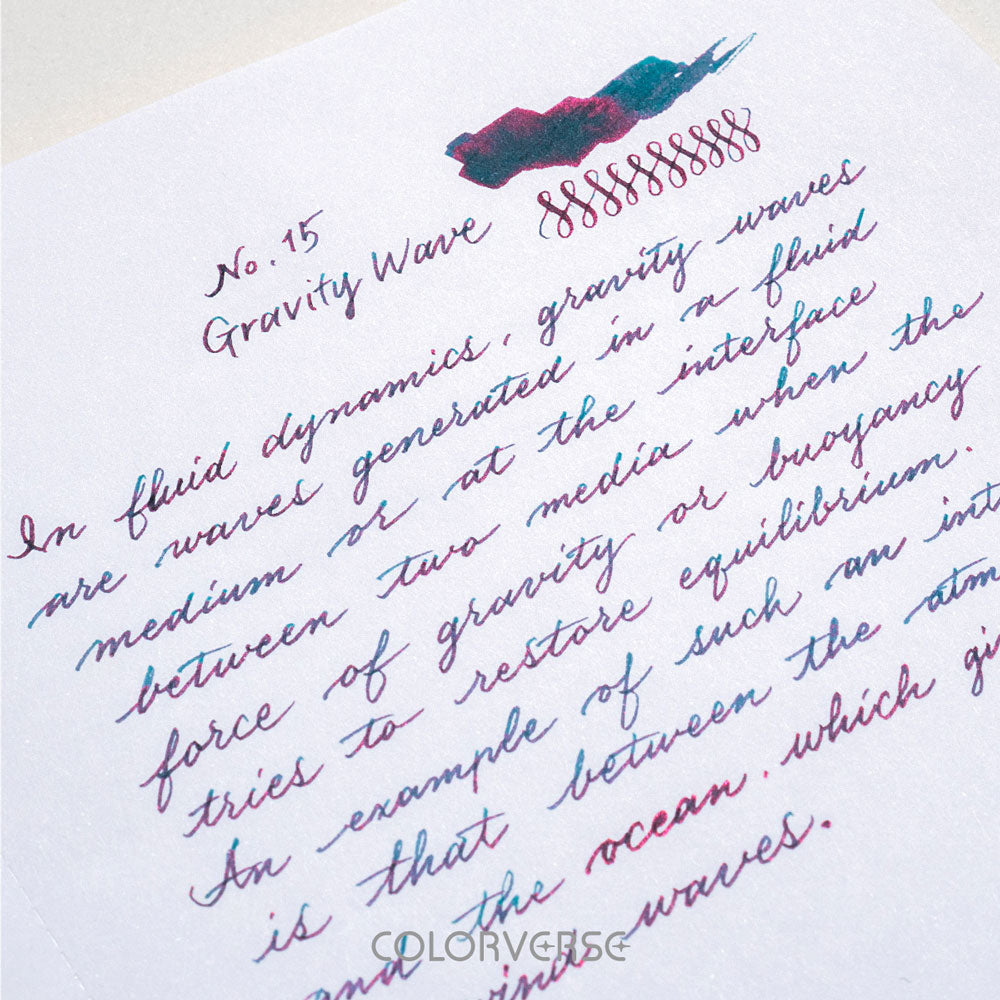 No. 15
Gravity Wave
In fluid dynamics, gravity waves
are waves generated in a fluid
medium or at the interface
between two media when the
force of gravity or buoyancy
tries to restore equilibrium.
An example of such an int
is that between the atm
and the ocean, which gi
wind waves.
COLORVERSE